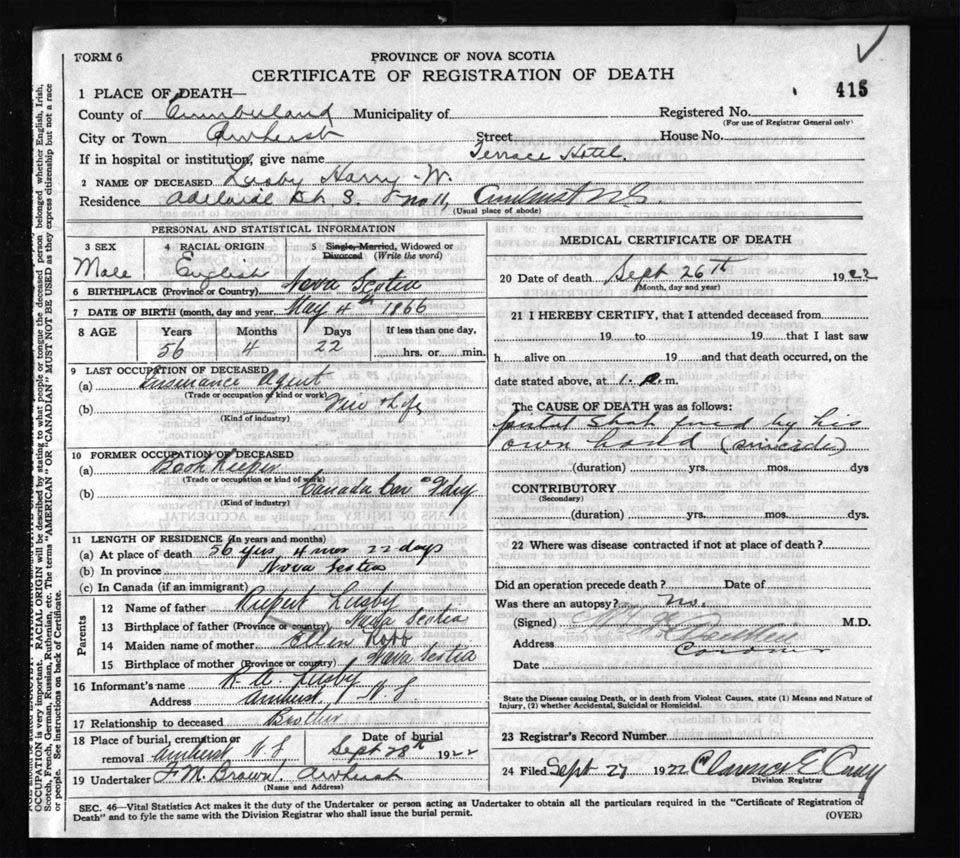 FORM 6
PROVINCE OF NOVA SCOTIA
CERTIFICATE OF REGISTRATION OF DEATH
415
1 PLACE OF DEATH—
County of Cumberland Municipality of Registered No.
(For use of Registrar General only)
City or Town Amherst Street House No.
If in hospital or institution, give name Terrace Hotel.
2 NAME OF DECEASED Lusby Harry W.
Residence Adelaide St. Amherst N.S.
(Usual place of abode)
PERSONAL AND STATISTICAL INFORMATION
3 SEX Male
4 RACIAL ORIGIN English
5 Single, Married, Widowed or Divorced (Write the word)
6 BIRTHPLACE (Province or Country) Nova Scotia
7 DATE OF BIRTH (month, day and year May 4th 1866
8 AGE Years 56 Months 4 Days 22 If less than one day, hrs. or min.
9 LAST OCCUPATION OF DECEASED
(a) Insurance Agent
(Trade or occupation or kind of work)
(b) Fire & Life
(Kind of industry)
10 FORMER OCCUPATION OF DECEASED
(a) Book Keeper
(Trade or occupation or kind of work)
(b) Canada Car & Fdry
(Kind of industry)
11 LENGTH OF RESIDENCE (In years and months)
(a) At place of death 56 yrs 4 mos 22 days
(b) In province Nova Scotia
(c) In Canada (if an immigrant)
Parents
12 Name of father Rupert Lusby
13 Birthplace of father (Province or country) Nova Scotia
14 Maiden name of mother Ellen Robb
15 Birthplace of mother (Province or country) Nova Scotia
16 Informant's name Lusby
Address Amherst N S
17 Relationship to deceased Brother
18 Place of burial, cremation or removal Amherst N.S Date of burial Sept 28th 1922
19 Undertaker F.M. Brown. Amherst
(Name and Address)
MEDICAL CERTIFICATE OF DEATH
20 Date of death Sept 26th 1922
(Month, day and year)
21 I HEREBY CERTIFY, that I attended deceased from
19 to 19 that I last saw
h alive on 19 and that death occurred, on the
date stated above, at 1 m.
The CAUSE OF DEATH was as follows:
pistol shot fired by his
own hand (suicide)
(duration) yrs. mos. dys
CONTRIBUTORY
(Secondary)
(duration) yrs. mos. dys.
22 Where was disease contracted if not at place of death?
Did an operation precede death? Date of
Was there an autopsy? no.
(Signed) M.D.
Address Coroner
Date
State the Disease causing Death, or in death from Violent Causes, state (1) Means and Nature of
Injury, (2) whether Accidental, Suicidal or Homicidal.
23 Registrar's Record Number
24 Filed Sept 27 1922 Clarence E
Division Registrar
SEC. 46—Vital Statistics Act makes it the duty of the Undertaker or person acting as Undertaker to obtain all the particulars required in the "Certificate of Registration of
Death" and to fyle the same with the Division Registrar who shall issue the burial permit.
(OVER)
OCCUPATION is very important. RACIAL ORIGIN will be described by stating to what people or tongue the deceased person belonged whether English, Irish,
Scotch, French, German, Russian, Ruthenian, etc. The terms "AMERICAN" OR "CANADIAN" MUST NOT BE USED as they express citizenship but not a race
or people. See instructions on back of Certificate.